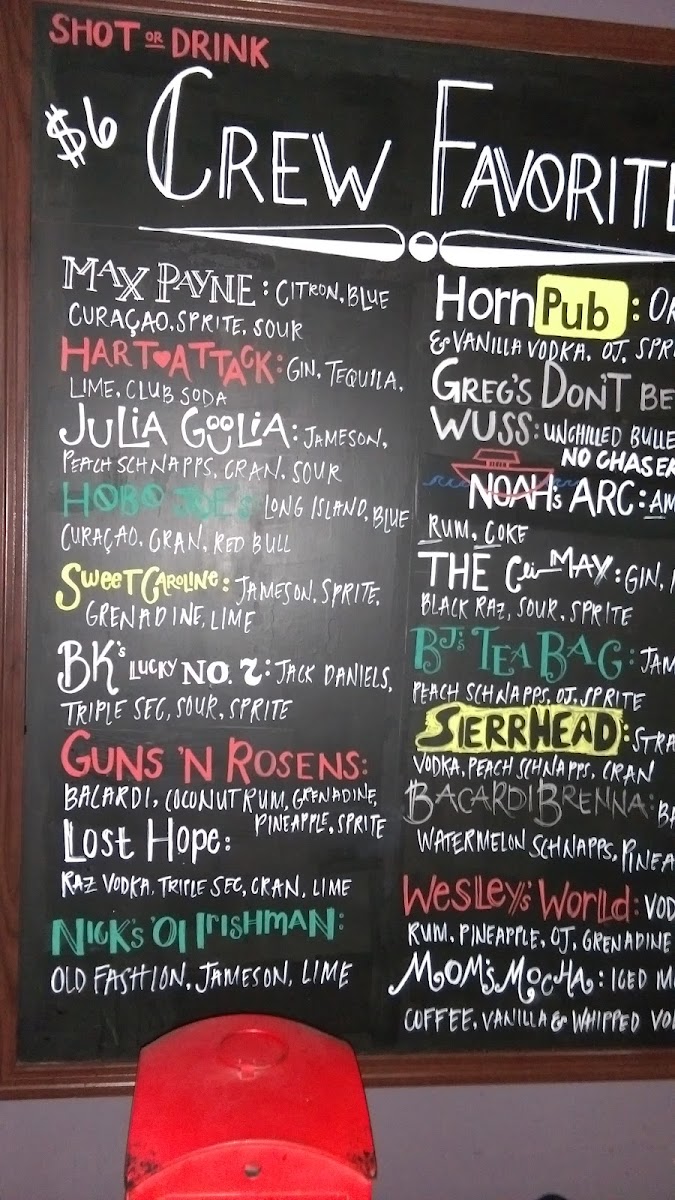 SHOT OR DRINK
$6 CREW FAVORITE
MAX PAYNE: CITRON, BLUE
CURAÇAO, SPRITE, SOUR
HART♥ATTACK: GIN, TEQUILA,
LIME, CLUB SODA
JULIA GOOLIA: JAMESON,
PEACH SCHNAPPS, CRAN, SOUR
HOBO JOE'S LONG ISLAND, BLUE
CURAÇAO, CRAN, RED BULL
SWEET CAROLINE: JAMESON, SPRITE,
GRENADINE, LIME
BK'S LUCKY NO. 7: JACK DANIELS,
TRIPLE SEC, SOUR, SPRITE
GUNS 'N ROSENS:
BACARDI, COCONUT RUM, GRENADINE,
PINEAPPLE, SPRITE
LOST HOPE:
RAZ VODKA, TRIPLE SEC, CRAN, LIME
NICK'S 'OL IRISHMAN:
OLD FASHION, JAMESON, LIME
Horn Pub: OR
& VANILLA VODKA, OJ, SPR
GREG'S DON'T BE
WUSS: UNCHILLED BULLE
NO CHASER
NOAH'S ARC: AM
RUM, COKE
THE Cli-MAY: GIN,
BLACK RAZ, SOUR, SPRITE
BJ'S TEA BAG: JAM
PEACH SCHNAPPS, OJ, SPRITE
SIERRHEAD: STRA
VODKA, PEACH SCHNAPPS, CRAN
BACARDI BRENNA: BA
WATERMELON SCHNAPPS, PINEA
WESLEY'S WORLD: VOD
RUM, PINEAPPLE, OJ, GRENADINE
MOM'S MOCHA: ICED M
COFFEE, VANILLA & WHIPPED VO